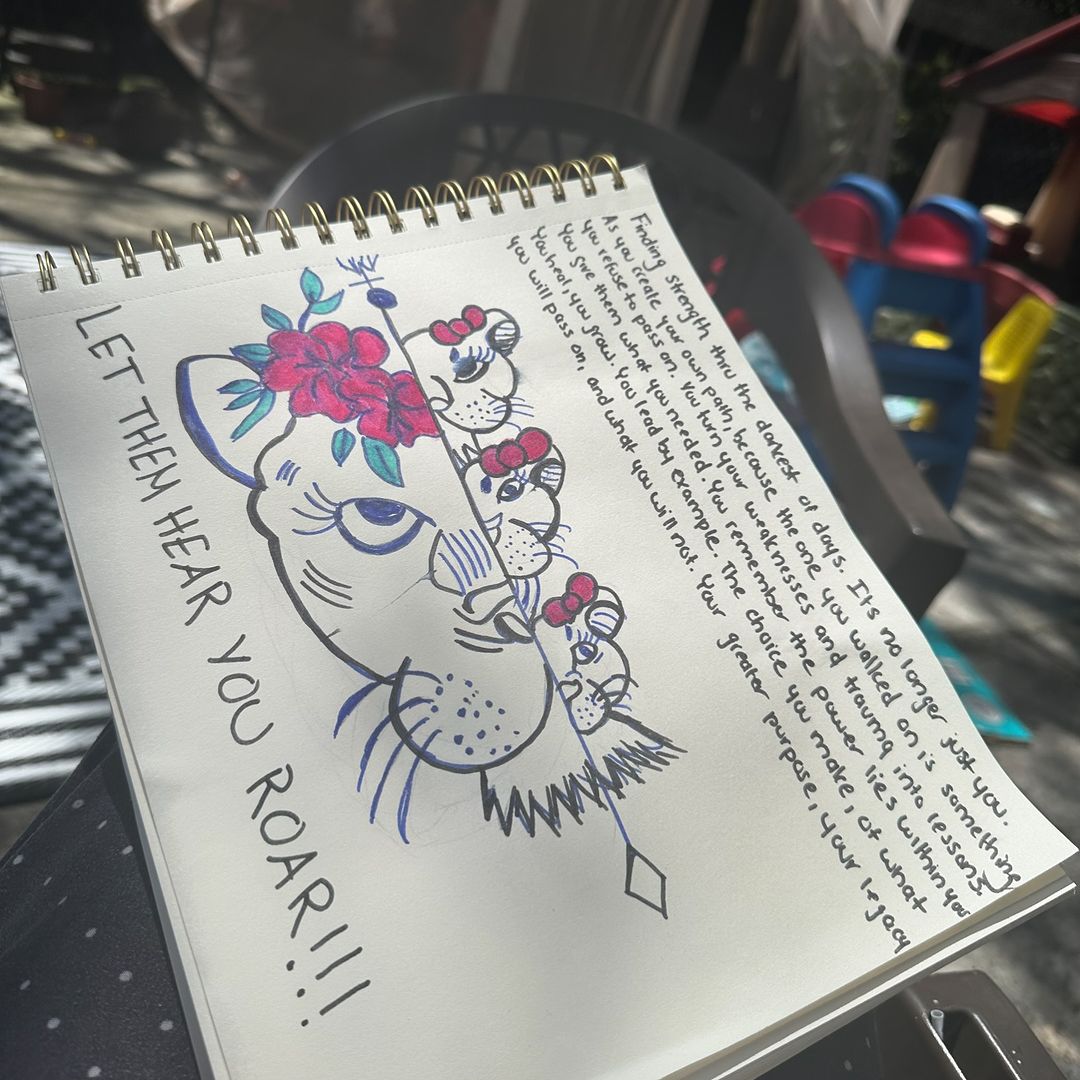 Finding strength thru the darkest of days. Its no longer just you.
As you create your own path, because the one you walked on is something
you refuse to pass on. You turn your weaknesses and trauma into lessons.
You give them what you needed. You remember the power lies within you
You heal, you grow. You lead by example. The choice you make, of what
you will pass on, and what you will not. Your greater purpose, your legacy
LET THEM HEAR YOU ROAR!!!